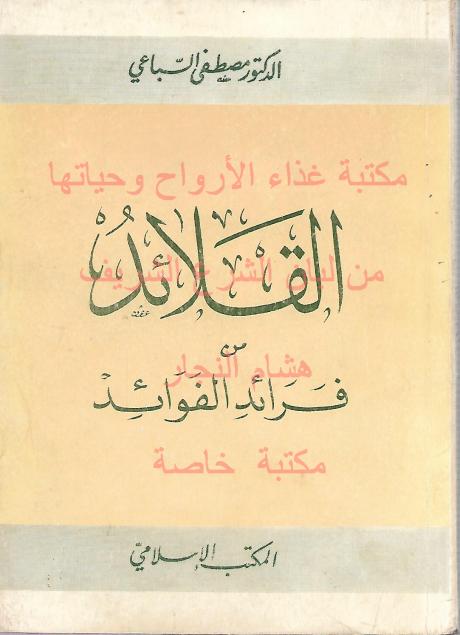 الدكتور مصطفى السباعي
مكتبة غذاء الأرواح وحياتها
القَلَائِدُ
من لبان الشرع الشريف
من
هشام النجار
فَرَائِدِ الفَوَائِدِ
مكتبة خاصة
المكتب الإسلاميّ